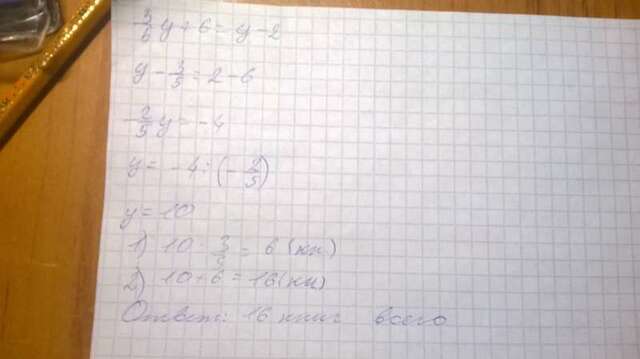 3/5 y + 6 = y - 2
y - 3/5 = 2 - 6
- 2/5 y = - 4
y = - 4 : (- 2/5)
y = 10
1) 10 · 3/5 = 6 (кн.)
2) 10 + 6 = 16 (кн)
Ответ: 16 книг всего